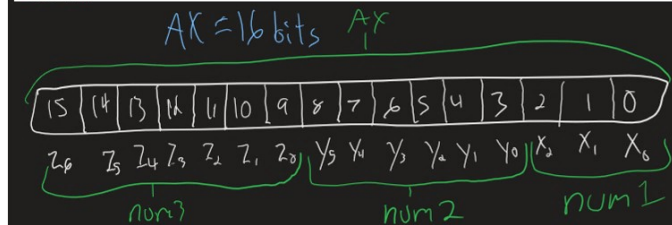 AX = 16 bits AX
15 14 13 12 11 10 9 8 7 6 5 4 3 2 1 0
Z6 Z5 Z4 Z3 Z2 Z1 Z0 Y5 Y4 Y3 Y2 Y1 Y0 X2 X1 X0
num3 num2 num1